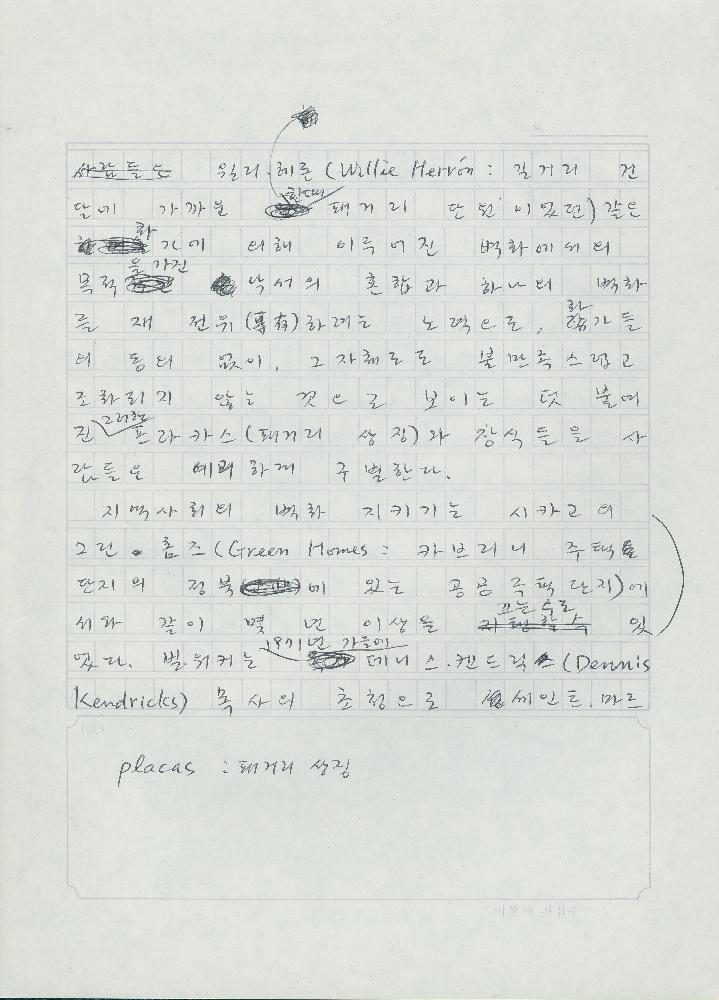 사람들는 윌리.헤론(Willie Herrón: 길거리 건
한때
달에 가까운 패거리 단원이었던)같은
화
가에 의해 이루어진 벽화에서의
을 가진
목적 낙서의 혼합과 하나의 벽화
화
를 재 전유(專有)하려는 노력으로, 가들
의 동의 없이, 그자체로도 불만족스럽고
조화되지 않는 것으로 보이는 덧 붙여
그러한
진 프라카스(패거리 상징)와 장식들을 사
람들은 예리하게 구별한다.
지역사회의 벽화 지키기는 시카고의
그린.홈즈(Green Homes: 카브리니 주택
단지의 정북 에 있는 공공주택단지)에
끄는 수도
서와 같이 몇 년 이상을 있
1971년 가을에
었다. 빌.워커는 데니스.켄드릭스(Dennis
Kendricks) 목사의 초청으로 세인트.마르
placas : 패거리 상징